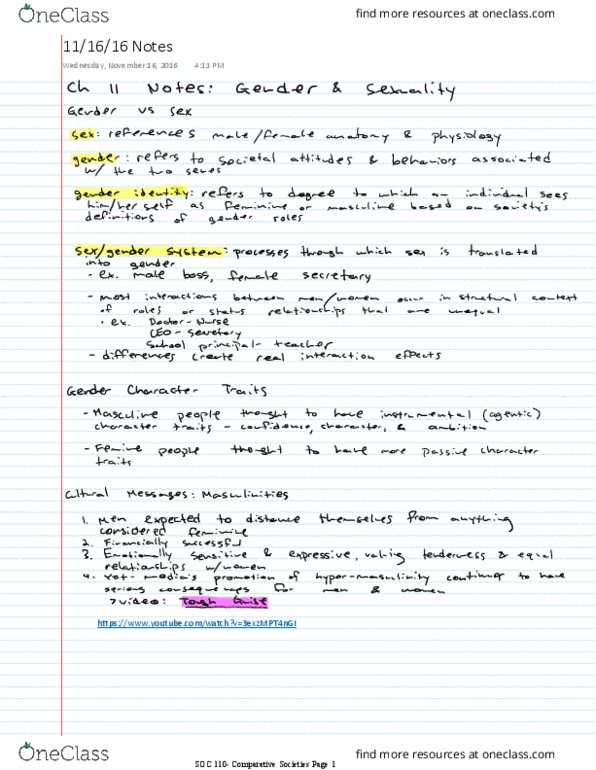 OneClass find more resources at oneclass.com
11/16/16 Notes
Wednesday, November 16, 2016 4:11 PM
Ch 11 Notes: Gender & Sexuality
Gender vs sex
sex: references male/female anatomy & physiology
gender: refers to societal attitudes & behaviors associated
w/ the two sexes
gender identity: refers to degree to which an individual sees
him/herself as feminine or masculine based on society's
definitions of gender roles
sex/gender system: processes through which sex is translated
into gender
- ex. male boss, female secretary
- most interactions between men/women occur in structural context
of roles or status relationships that are unequal
• ex. Doctor-Nurse
CEO - Secretary
School principal - teacher
- differences create real interaction effects
Gender Character Traits
- Masculine people thought to have instrumental (agentic)
character traits - confidence, character, & ambition
- Femine people thought to have more passive character
traits
Cultural Messages: Masculinities
1. Men expected to distance themselves from anything
considered feminine
2. Financially successful
3. Emotionally sensitive & expressive, valuing tenderness & equal
relationships w/women
4. Yet - media's promotion of hyper-masculinity continues to have
serious consequences for men & women
→video: Tough Guise
https://www.youtube.com/watch?v=3exzMPT4nGI
OneClass find more resources at oneclass.com
SOC 110- Comparative Societies Page 1